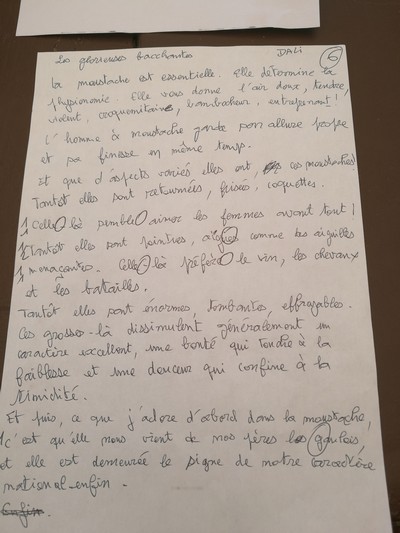 Les glorieuses bacchantes DALI 6
La moustache est essentielle. Elle détermine la
physionomie. Elle vous donne l'air doux, tendre,
violent, croquemitaine, bambocheur, entreprenant!
L'homme à moustache garde son allure propre
et sa finesse en même temps.
Et que d'aspects variés elles ont, ces moustaches!
Tantôt elles sont retournées, frisées, coquettes.
Celle là semble aimer les femmes avant tout!
Tantôt elles sont pointues, comme des aiguilles
menaçantes. Celle là préfère le vin, les chevaux
et les batailles.
Tantôt elles sont énormes, tombantes, effroyables.
Ces grosses-là dissimulent généralement un
caractère excellent, une bonté qui touche à la
faiblesse et une douceur qui confine à la
timidité.
Et puis, ce que j'adore d'abord dans la moustache,
c'est qu'elle nous vient de nos pères les gaulois,
et elle est demeurée le signe de notre caractère
national-enfin.
Enfin.